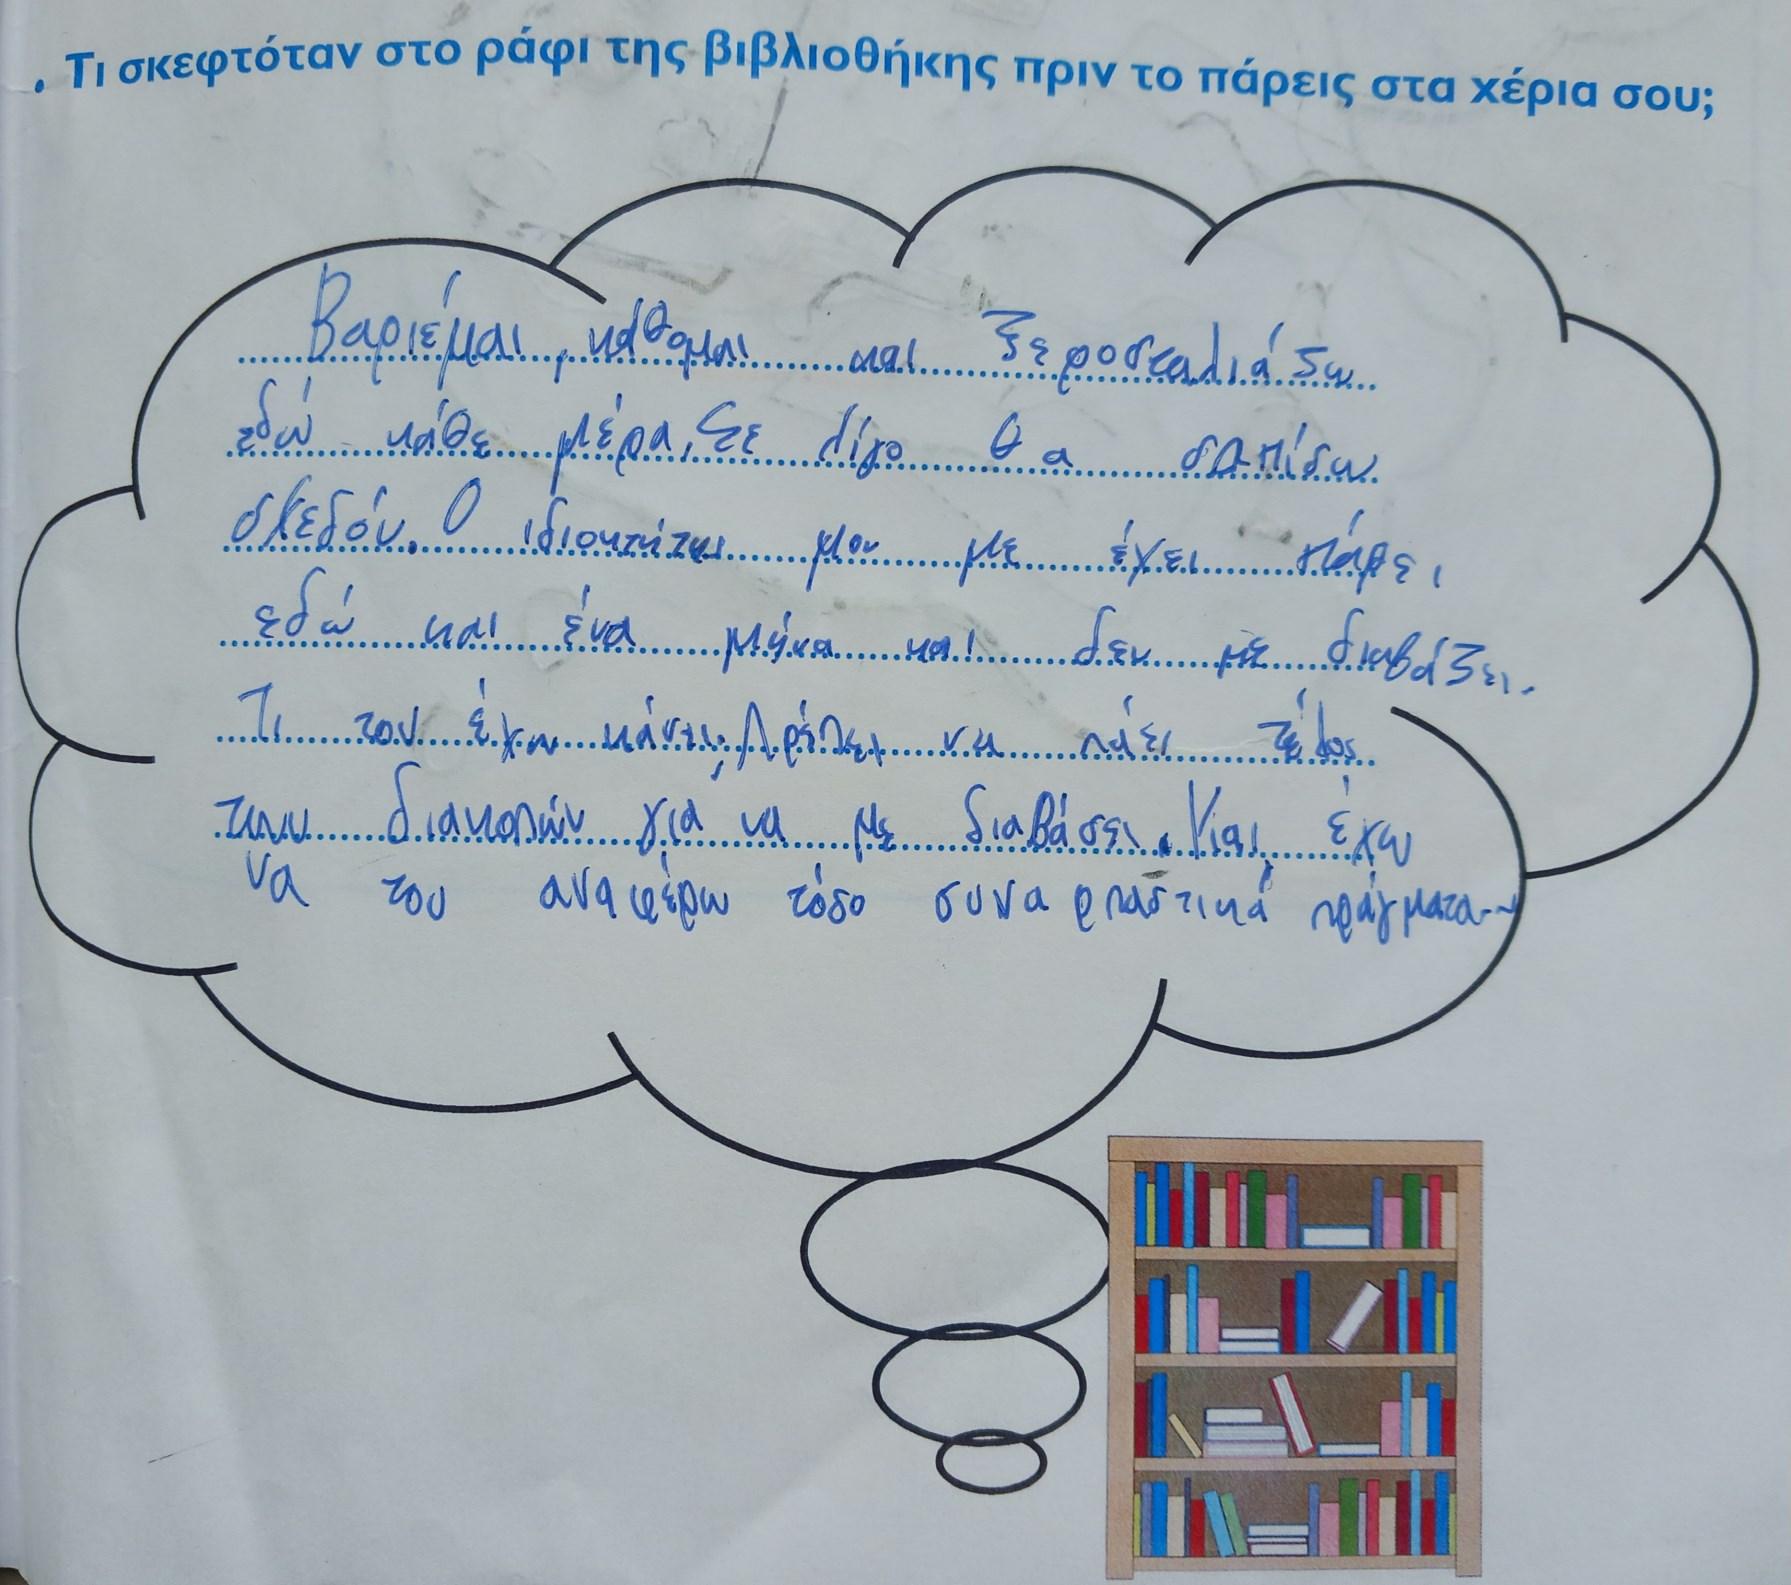 . Τι σκεφτόταν στο ράφι της βιβλιοθήκης πριν το πάρεις στα χέρια σου;
Βαριέμαι, κάθομαι και ξεροσταλιάζω
εδώ κάθε μέρα, Σε λίγο θα σαπίσω
σχεδόν. Ο ιδιοκτήτης μου με έχει πάρει
εδώ και ένα μήνα και δεν με διαβάζει.
Τι του έχω κάνει; Πρέπει να πάει τέλος
των διακοπών για να με διαβάσει. Και έχω
να του αναφέρω τόσο συναρπαστικά πράγματα...